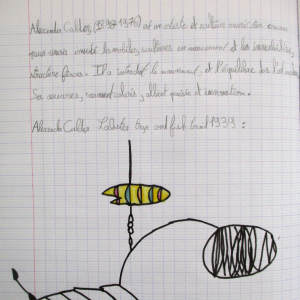 Alexander Calder, (1898-1976) est un artiste et sculpteur américain connu
pour avoir inventé les mobiles, sculptures en mouvement et les immobiles,
structure fixes. Il a introduit le mouvement, et l'équilibre dans l'art
Ses œuvres, souvent colorés, allient poésie et innovation.
Alexander Calder Lobster trap and fish tail 1939 :